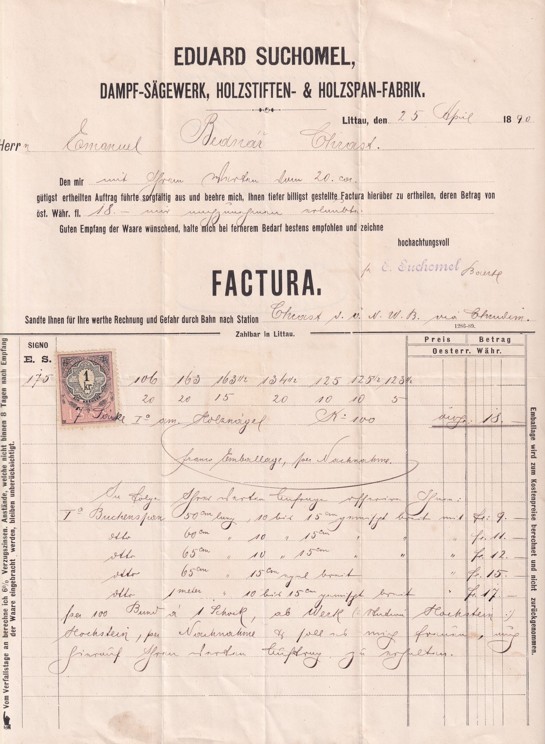 EDUARD SUCHOMEL,
DAMPF-SÄGEWERK, HOLZSTIFTEN- & HOLZSPAN-FABRIK.
Littau, den 25 April 1890
Herrn Emanuel Bednář Chrast.
Den mir mit Ihrem Werten vom 20. cor.
gütigst ertheilten Auftrag führte sorgfältig aus und beehre mich, Ihnen tiefer billigst gestellte Factura hierüber zu ertheilen, deren Betrag von
öst. Währ. fl. 18.-
Guten Empfang der Waare wünschend, halte mich bei fernerem Bedarf bestens empfohlen und zeichne
hochachtungsvoll
E. Suchomel
FACTURA.
Sandte Ihnen für Ihre werthe Rechnung und Gefahr durch Bahn nach Station Chrast N. W. B. via Chrudim.
Zahlbar in Littau.
SIGNO
E. S.
Preis
Betrag
Oesterr. Währ.
1 kr
175 106 163 163 134 125 125 123
20 20 15 20 10 10 5
Iª am. Holznägel K: 100 18.-
franco Emballage, per Nachnahme.
In Folge Ihrer werten offerire Ihnen:
Iª Buchenspan 50 cm lang, 10 bis 15 cm breit mit fr: 9.-
dtto 60 cm " 10 " 15 cm " " fr. 11.-
dtto 65 cm " 10 " 15 cm " " fr. 12.-
dtto 65 cm " 15 cm breit " fr. 15.-
dtto 1 meter " 10 bis 15 cm breit " fr. 17.-
per 100 Bund à 1 Schock, ab Werk Hochstein
Hochstein, per Nachnahme & soll es mich freuen,
hierauf Ihren werten Auftrag zu erhalten.
Vom Verfallstage an berechne ich 6% Verzugszinsen. Anstände, welche nicht binnen 8 Tagen nach Empfang
der Waare eingebracht werden, bleiben unberücksichtigt.
Emballage wird zum Kostenpreise berechnet und nicht zurückgenommen.